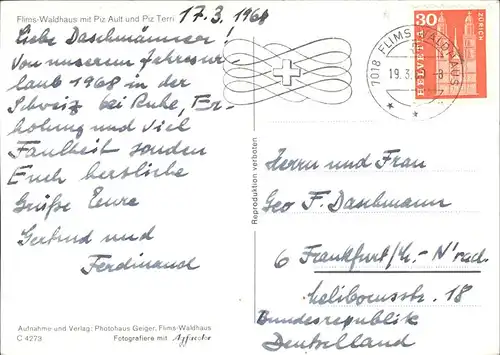 Flims-Waldhaus mit Piz Ault und Piz Terri
17.3.1968
Liebe Daschmänner!
Von unserem Jahresur-
laub 1968 in der
Schweiz bei Ruhe, Er-
holung und viel
Faulheit senden
Euch herzliche
Grüße Eure
Gertrud und
Ferdinand
Aufnahme und Verlag: Photohaus Geiger, Flims-Waldhaus
C 4273 Fotografiere mit Agfacolor
Reproduktion verboten
7018 FLIMS WALDHAUS
19.3. -8
30
HELVETIA
ZÜRICH
Herrn und Frau
Geo F. Daschmann
6 Frankfurt/M.-N'rad.
Melibocusstr. 18
Bundesrepublik
Deutschland